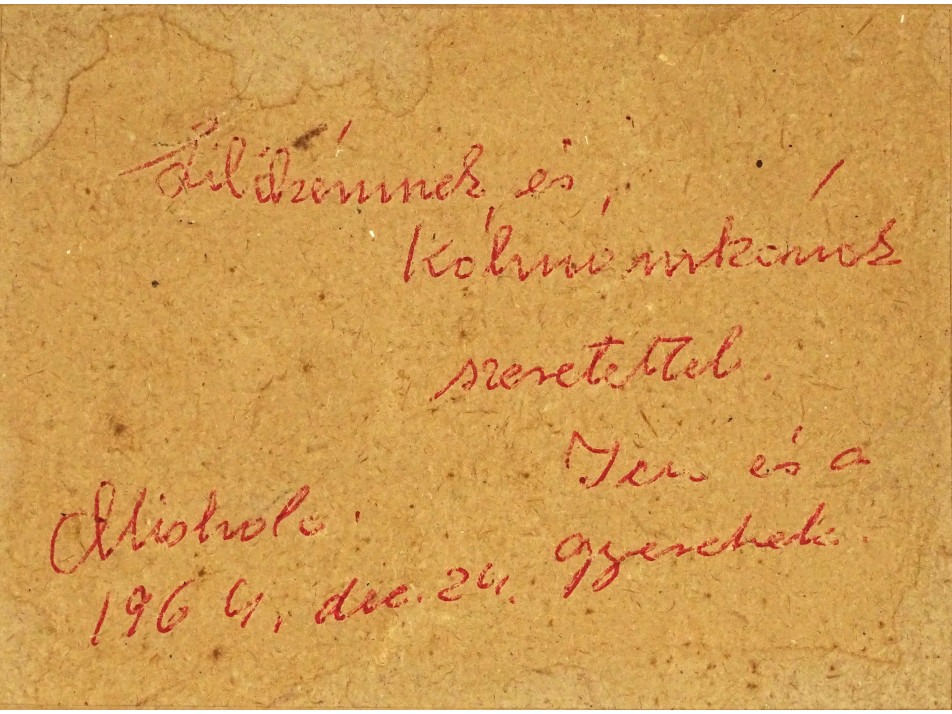 Ildikémnek és
Kálmánkának
szeretettel.
Jen és a
gyerekek.
Miskolc.
1964, dec. 24.